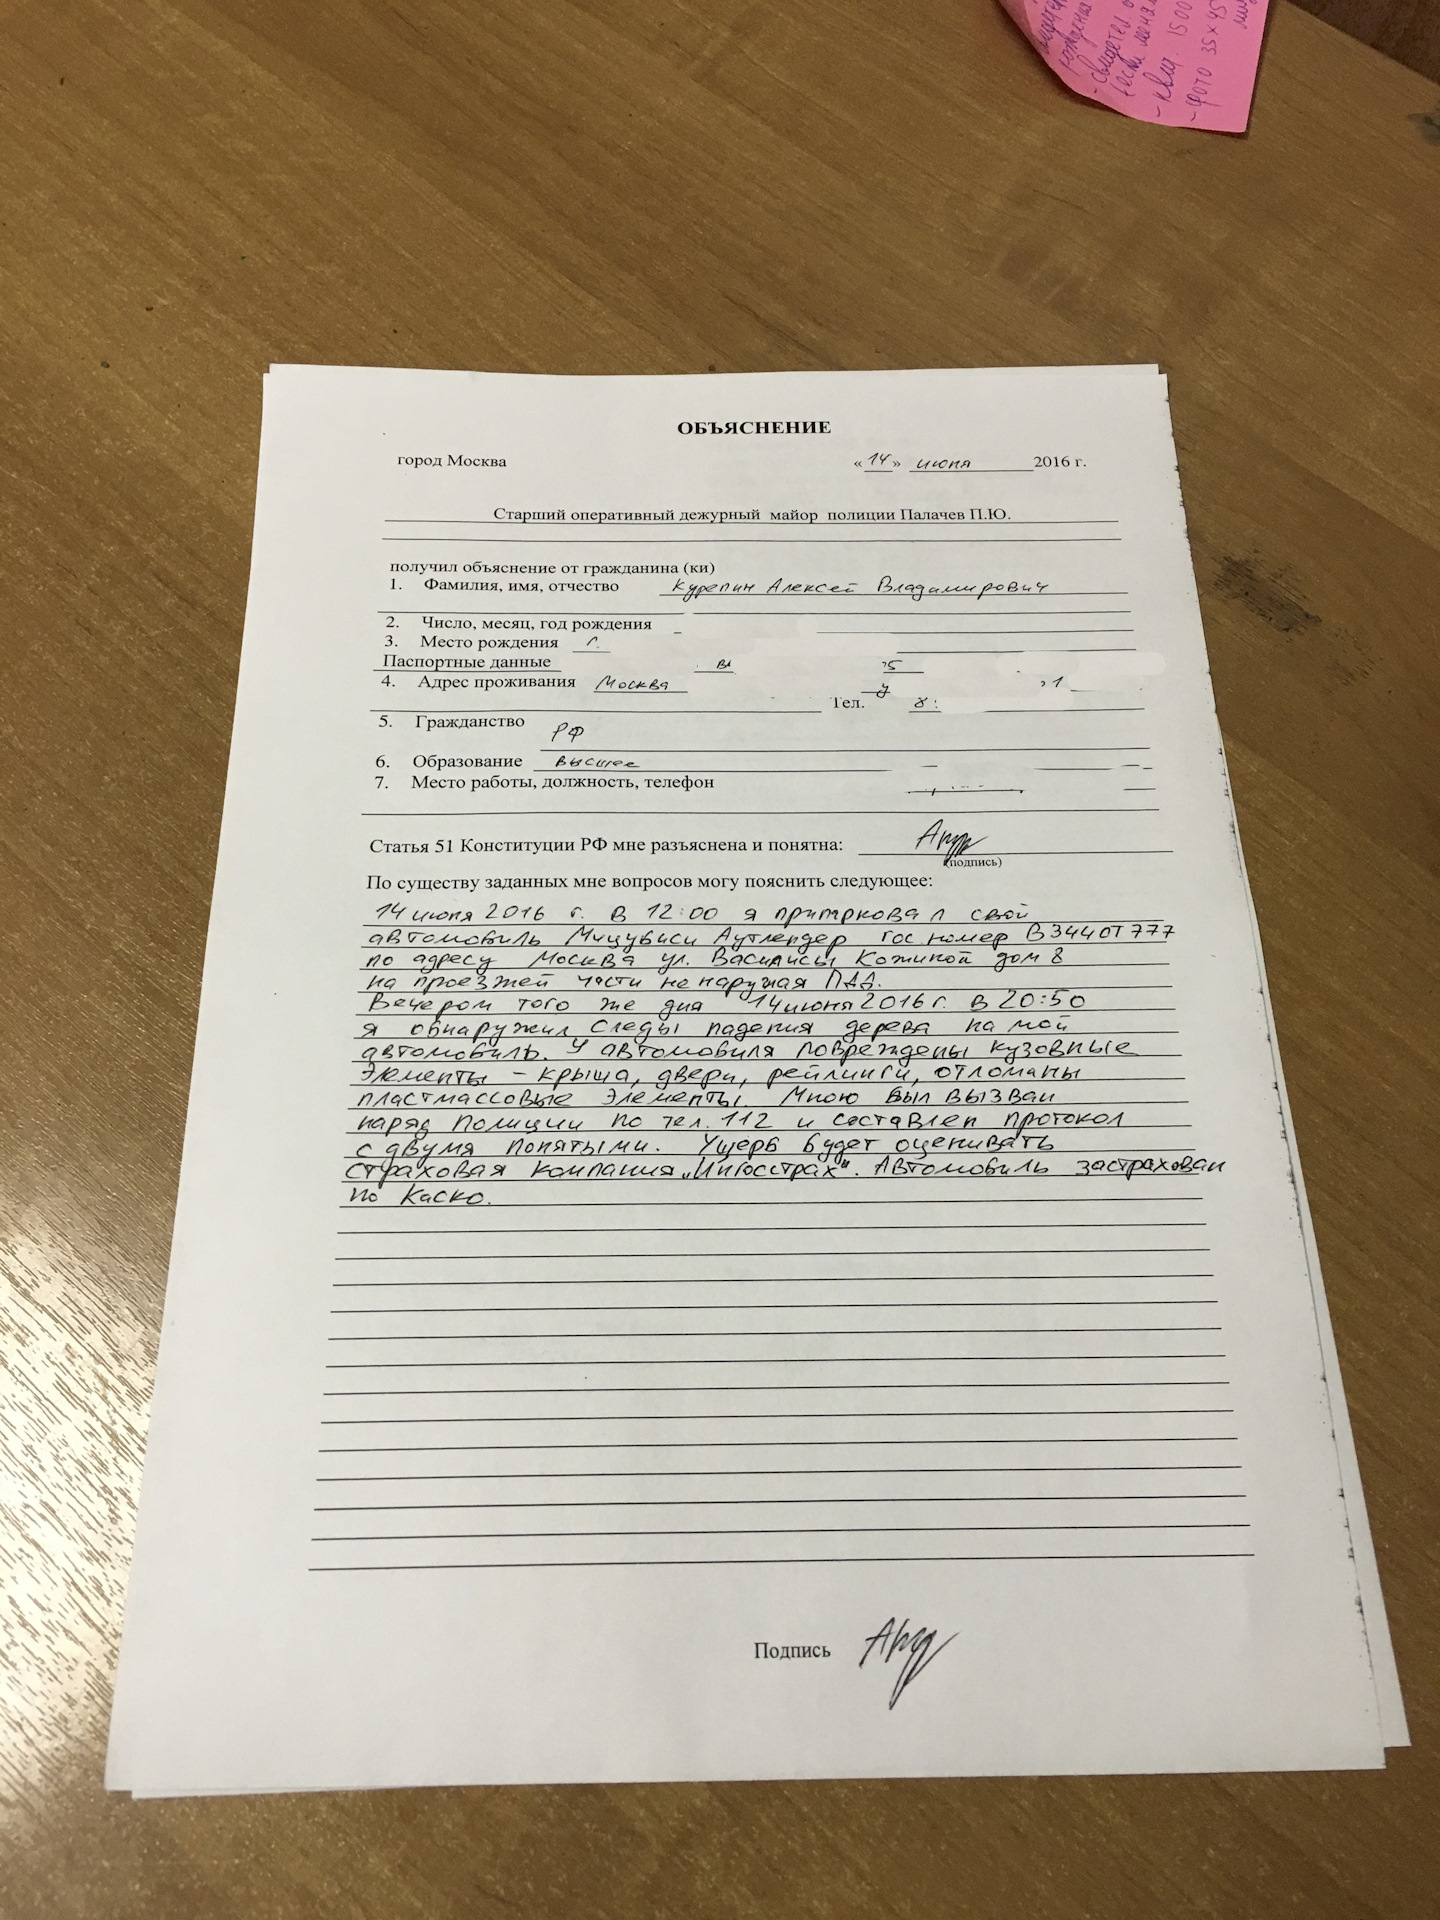 рождения
- свидетел
(если менял
- квит. 1500
- фото 35х45
ОБЪЯСНЕНИЕ
город Москва «14» июня 2016 г.
Старший оперативный дежурный майор полиции Палачев П.Ю.
получил объяснение от гражданина (ки)
1. Фамилия, имя, отчество Курепин Алексей Владимирович
2. Число, месяц, год рождения
3. Место рождения г.
Паспортные данные
4. Адрес проживания Москва
Тел. 8
5. Гражданство РФ
6. Образование высшее
7. Место работы, должность, телефон
Статья 51 Конституции РФ мне разъяснена и понятна:
(подпись)
По существу заданных мне вопросов могу пояснить следующее:
14 июня 2016 г. в 12:00 я припарковал свой
автомобиль Мицубиси Аутлендер гос. номер В344ОТ777
по адресу Москва ул. Василисы Кожиной дом 8
на проезжей части не наружая ПДД.
Вечером того же дня 14 июня 2016 г. в 20:50
я обнаружил следы падения дерева на мой
автомобиль. У автомобиля повреждены кузовные
элементы - крыша, двери, рейлинги, отломаны
пластмассовые элементы. Мною был вызван
наряд полиции по тел. 112 и составлен протокол
с двумя понятыми. Ущерб будет оценивать
страховая компания „Ингосстрах“. Автомобиль застрахован
по Каско.
Подпись